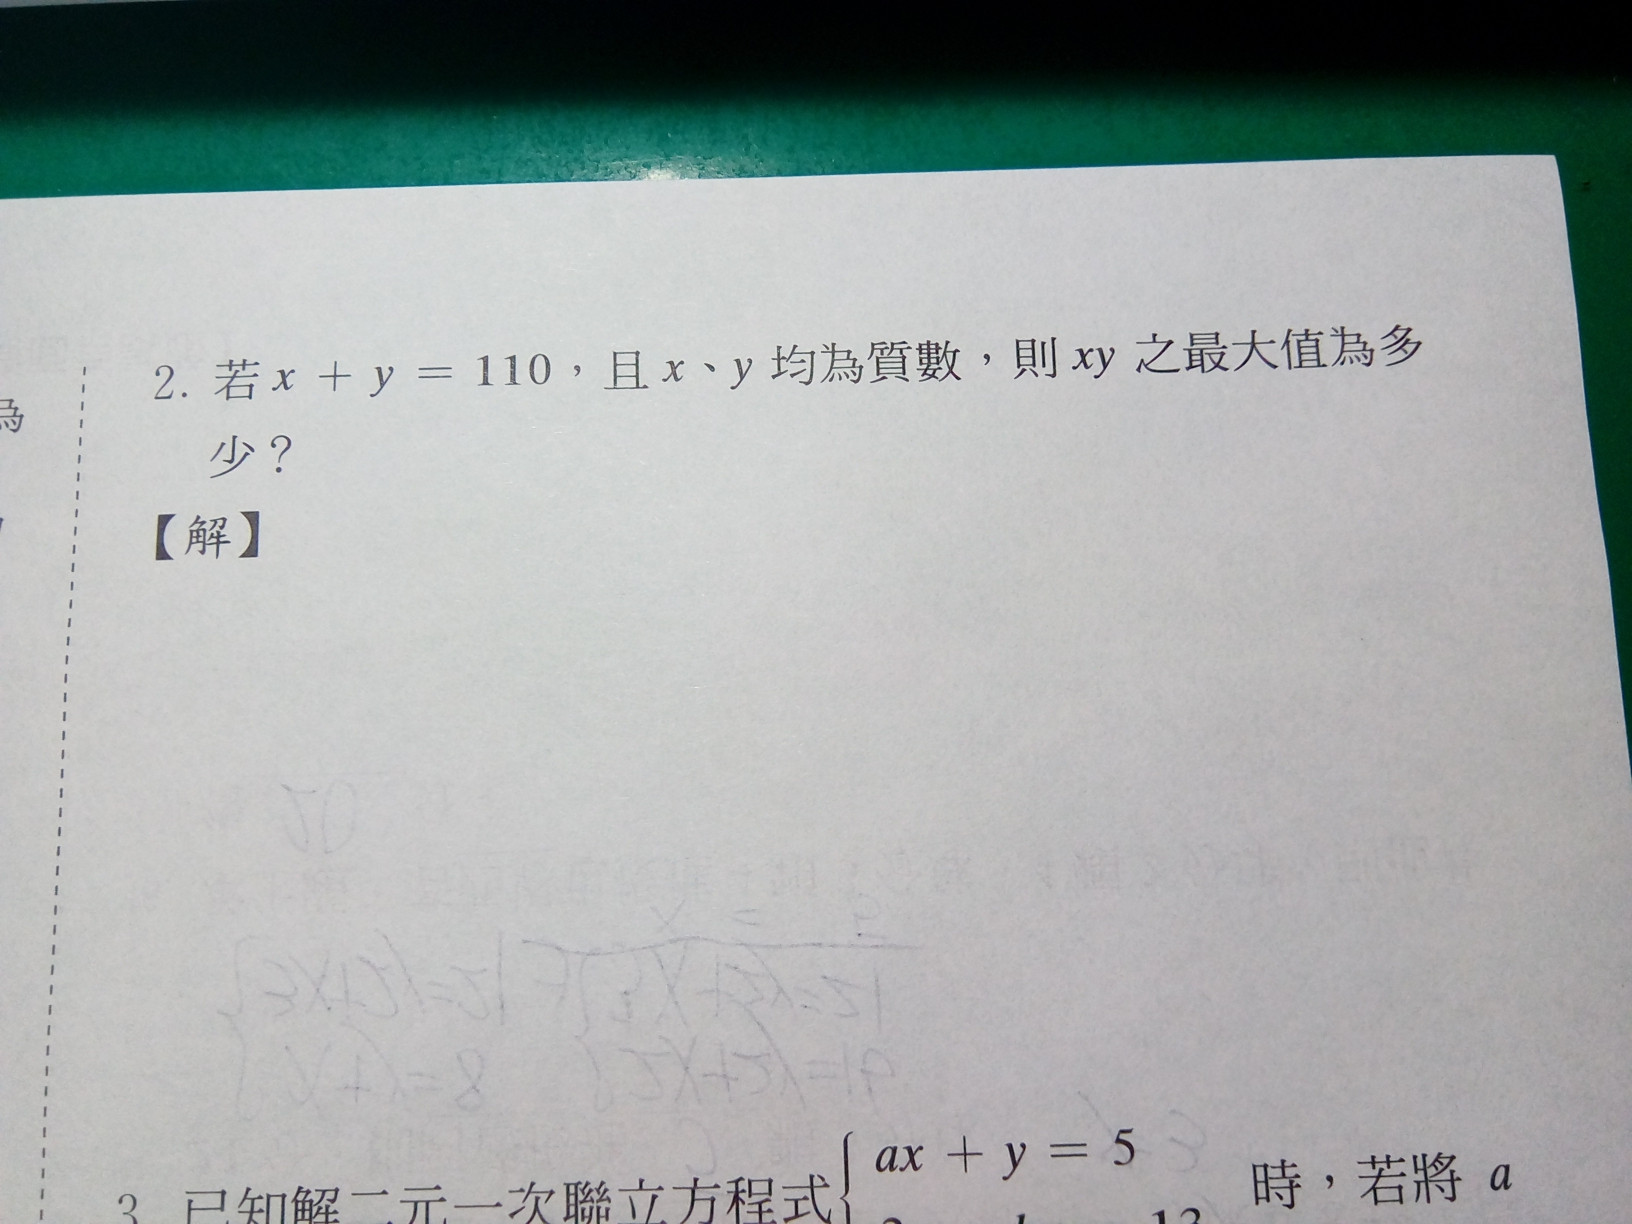 為
2. 若 x + y = 110，且 x、y 均為質數，則 xy 之最大值為多
少？
【解】
ax + y = 5
3. 已知解二元一次聯立方程式 時，若將 a
13